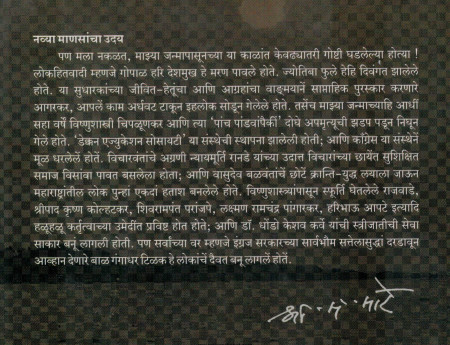 नव्या माणसांचा उदय
पण मला नकळत, माझ्या जन्मापासूनच्या या काळांत केवढ्यातरी गोष्टी घडलेल्या होत्या !
लोकहितवादी म्हणजे गोपाळ हरि देशमुख हे मरण पावले होते. ज्योतिबा फुले हेहि दिवंगत झालेले
होते. या सुधारकांच्या जीवित-हेतूंचा आणि आग्रहांचा वाङ्मयानें सामाहिक पुरस्कार करणारे
आगरकर, आपलें काम अर्धवट टाकून इहलोक सोडून गेलेले होते. तसेंच माझ्या जन्माच्याहि आधीं
सहा वर्षें विष्णुशास्त्री चिपळूणकर आणि त्या 'पांच पांडवांपैकीं' दोघे अपमृत्यूची झडप पडून निघून
गेले होते. 'डेक्कन एज्युकेशन सोसायटी' या संस्थेची स्थापना झालेली होती; आणि काँग्रेस या संस्थेनें
मूळ धरलेलें होतें. विचारवंतांचे अग्रणी न्यायमूर्ति रानडे यांच्या उदात्त विचारांच्या छायेंत सुशिक्षित
समाज विसांवा पावत बसलेला होता; आणि वासुदेव बळवंतांचें छोटें क्रान्ति-युद्ध लयाला जाऊन
महाराष्ट्रांतील लोक पुन्हा एकदां हताश बनलेले होते. विष्णुशास्त्र्यांपासून स्फूर्ति घेतलेले राजवाडे,
श्रीपाद कृष्ण कोल्हटकर, शिवरामपंत परांजपे, लक्ष्मण रामचंद्र पांगारकर, हरिभाऊ आपटे इत्यादि
हळूहळू कर्तृत्वाच्या उमेदींत प्रविष्ट होत होते; आणि डॉ. धोंडो केशव कर्वे यांची स्त्रीजातीची सेवा
साकार बनूं लागली होती. पण सर्वांच्या वर म्हणजे इंग्रज सरकारच्या सार्वभौम सत्तेलासुद्धां दरडावून
आव्हान देणारे बाळ गंगाधर टिळक हे लोकांचें दैवत बनूं लागलें होतें.
श्री. म. माटे